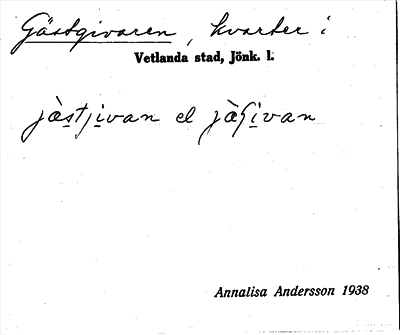 Gästgivaren, kvarter i
Vetlanda stad, Jönk. l.
jàstjivan el jàʃivan
Annalisa Andersson 1938